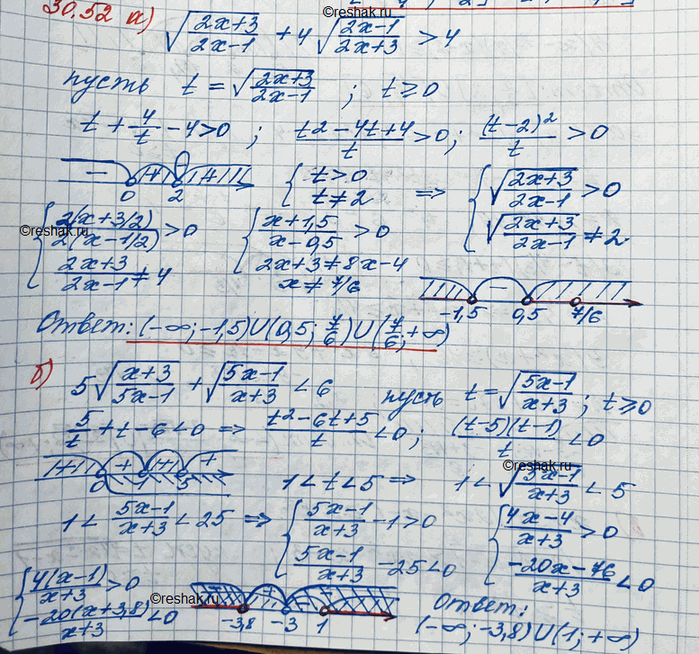 30.52 а) √((2x+3)/(2x-1)) + 4√((2x-1)/(2x+3)) > 4
©reshak.ru
пусть t = √((2x+3)/(2x-1)) ; t ≥ 0
t + 4/t - 4 > 0 ; (t2-4t+4)/t > 0 ; (t-2)²/t > 0
- + + 0 2 { t > 0 t ≠ 2 ⇒ { √((2x+3)/(2x-1)) > 0 √((2x+3)/(2x-1)) ≠ 2
©reshak.ru
{ 2(x+3/2)/2(x-1/2) > 0 (2x+3)/(2x-1) ≠ 4 { (x+1,5)/(x-0,5) > 0 2x+3 ≠ 8x-4 x ≠ 7/6
- -1,5 0,5 7/6
Ответ: (-∞; -1,5)∪(0,5; 7/6)∪(7/6; +∞)
б) 5√((x+3)/(5x-1)) + √((5x-1)/(x+3)) < 6 пусть t = √((5x-1)/(x+3)) ; t ≥ 0
5/t + t - 6 < 0 ⇒ (t2-6t+5)/t < 0 ; (t-5)(t-1)/t < 0
©reshak.ru
+ + + + 0 5 1 < t < 5 ⇒ 1 < √((5x-1)/(x+3)) < 5
1 < (5x-1)/(x+3) < 25 ⇒ { (5x-1)/(x+3) - 1 > 0 (5x-1)/(x+3) - 25 < 0 { (4x-4)/(x+3) > 0 (-20x-76)/(x+3) < 0
{ 4(x-1)/(x+3) > 0 -20(x+3,8)/(x+3) < 0
©reshak.ru
-3,8 -3 1
Ответ:
(-∞; -3,8)∪(1; +∞)